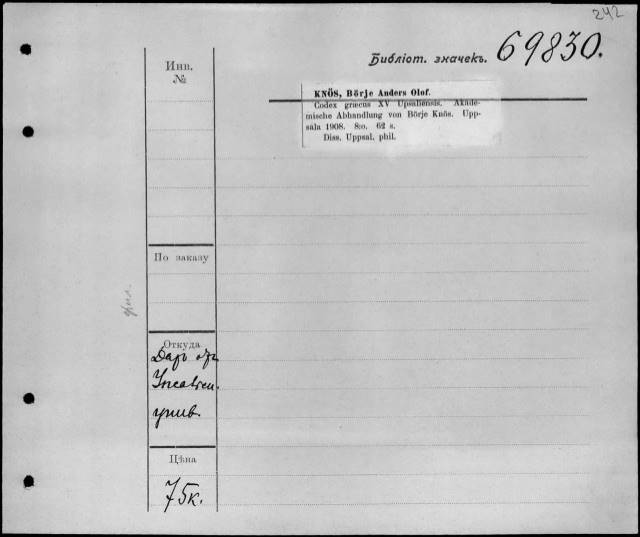 242
Библіот. значекъ. 69830.
Инв.
№
KNÖS, Börje Anders Olof.
Codex græcus XV Upsaliensis. Akade-
mische Abhandlung von Börje Knös. Upp-
sala 1908. 8:o. 62 s.
Diss. Uppsal. phil.
По заказу
фил.
Откуда
Даръ отъ
унив.
Цѣна
75к.